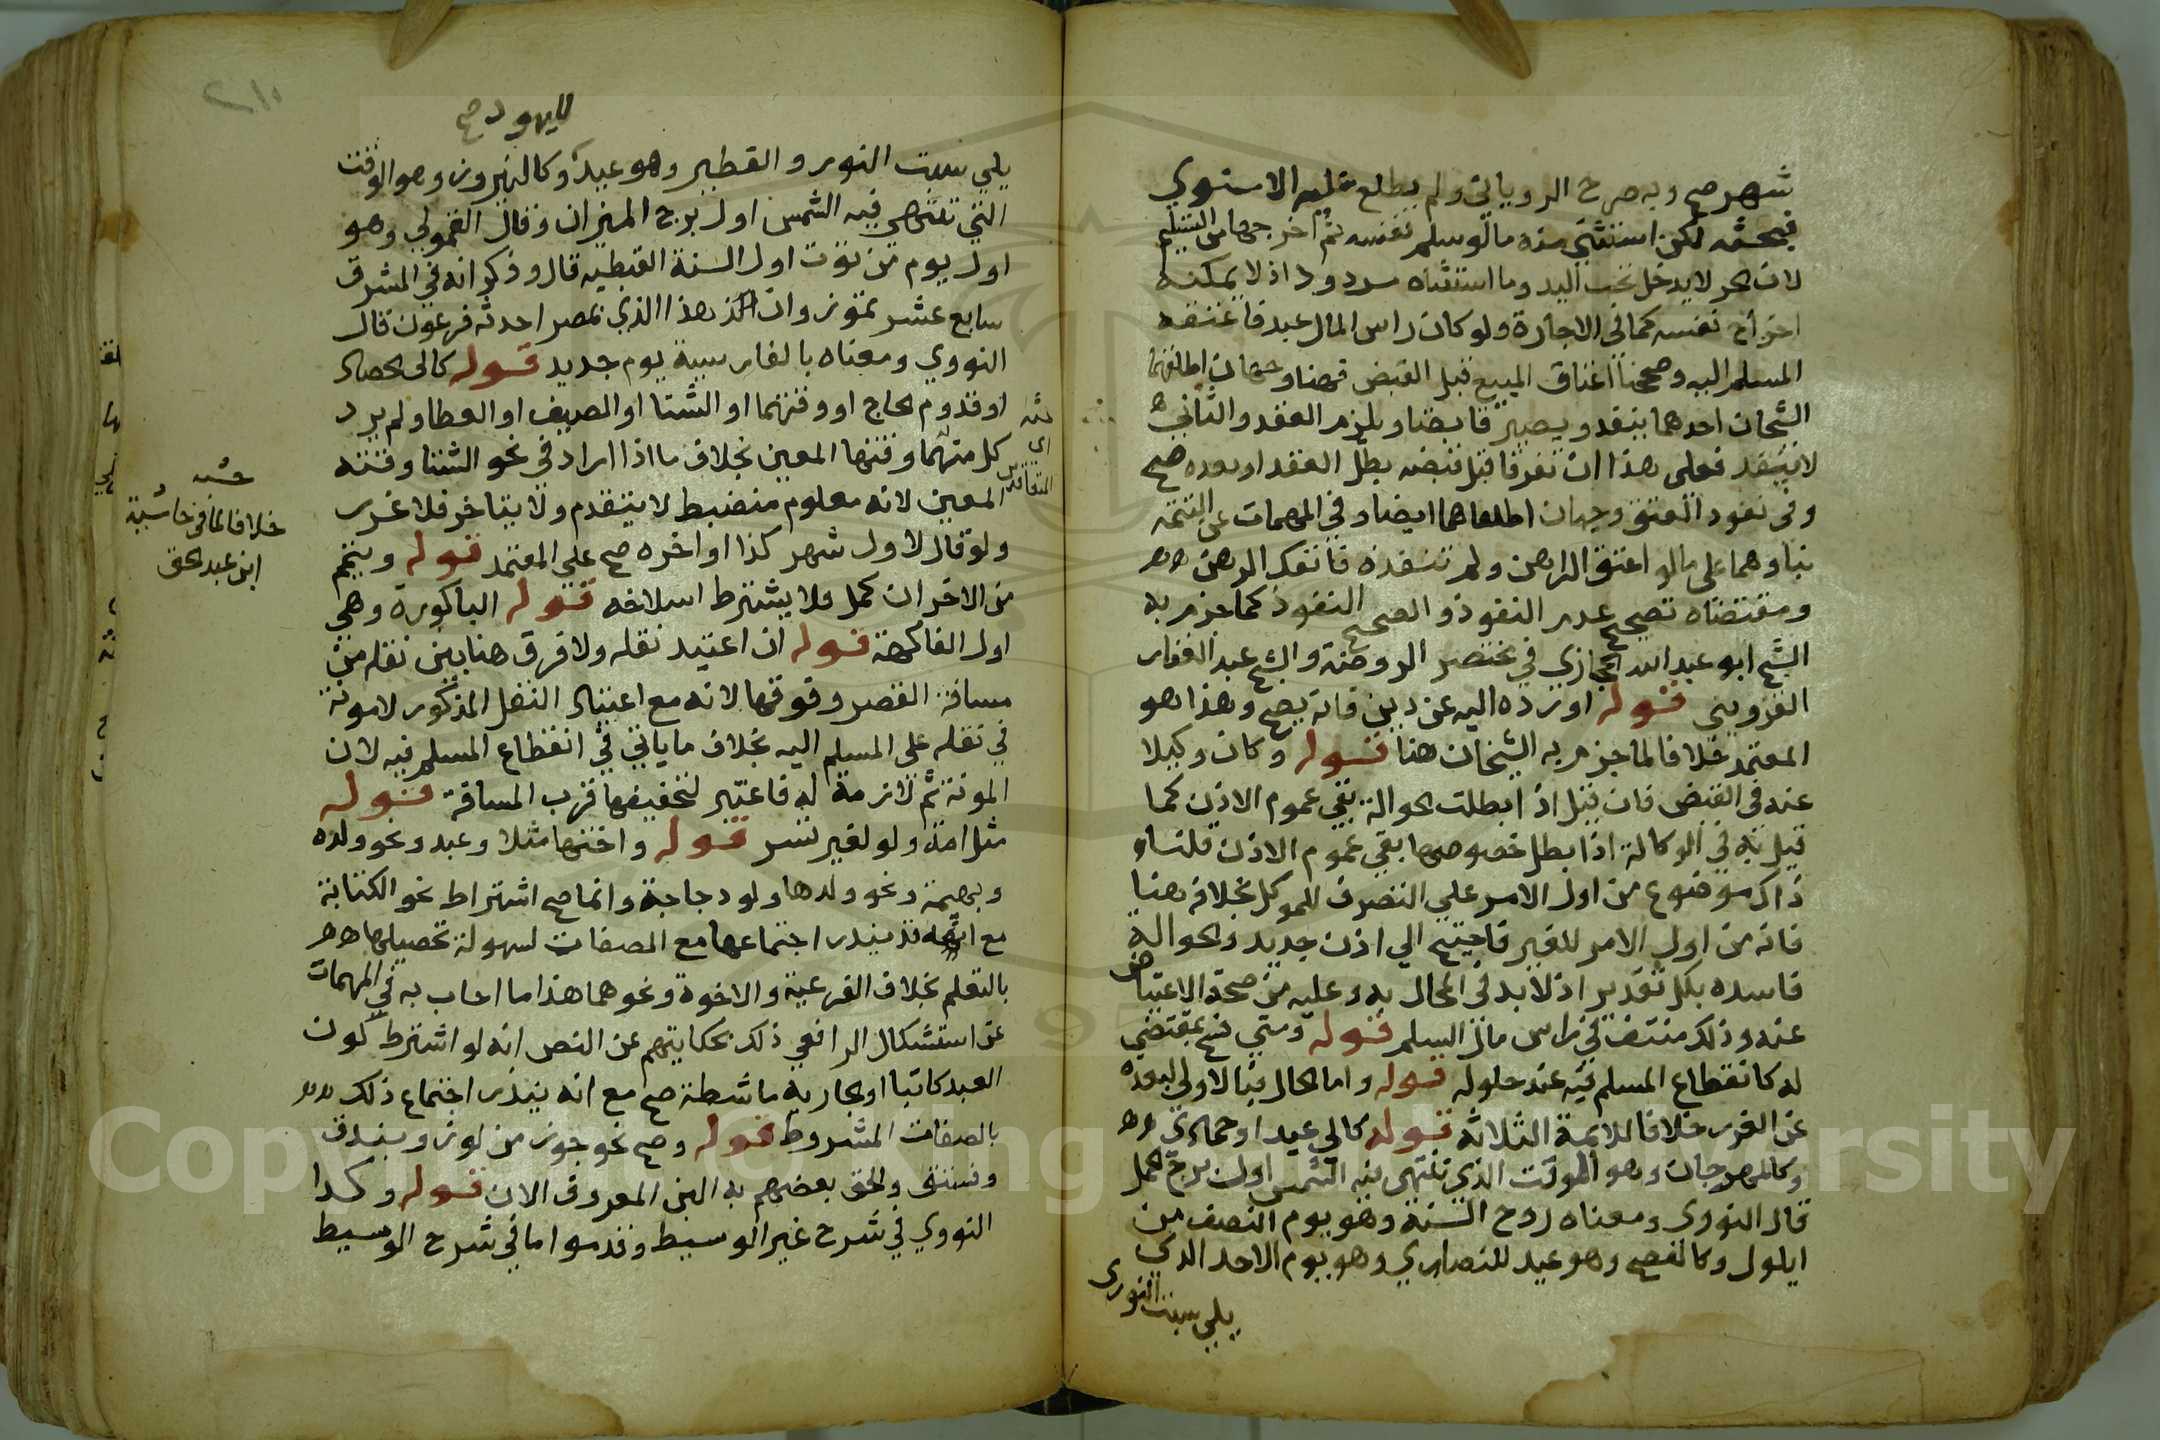 شهر صح وبه صرح الروياني ولم يطلع عليه الاسنوي
فبحثه لكن استثنى منه ما لو سلم نفسه ثم اخرجها من التسليم
لان الحر لا يدخل تحت اليد وما استثناه مردود اذ لا يمكنه
اخراج نفسه كما في الاجارة ولو كان راس المال عبد فاعتقه
المسلم اليه وصححنا اعتاق المبيع قبل القبض فهنا وجهان اطلقهما
الشيخان احدهما ينفذ ويصير قابضا ويلزم العقد والثاني
لا ينفذ فعلى هذا ان تفرقا قبل قبضه بطل العقد او بعده صح
وفي نفوذ العتق وجهان اطلقاهما ايضا وفي المهمات عن التتمة
بناوهما على ما لو اعتق الراهن ولم ننفذه فانفك الرهن
ومقتضاه تصحيح عدم النفوذ والصحيح النفوذ كما جزم به
الشيخ ابو عبد الله الحجازي في مختصر الروضة والشيخ عبد الغفار
القزويني قوله او رده اليه عن دين فانه يصح وهذا هو
المعتمد خلافا لما جزم به الشيخان هنا قوله وكان وكيلا
عنه في القبض فان قيل اذ ابطلت الحوالة بقي عموم الاذن كما
قيل به في الوكالة اذا بطل خصوصها بقي عموم الاذن قلنا
ذاك موضوع من اول الامر على التصرف للموكل بخلافه هنا
فانه من اول الامر للغير فاحتيج الي اذن جديد والحوالة
فاسده بكل تقدير اذ لا بد في المحال به وعليه من صحة الاعتياض
عنه وذلك منتف في راس مال السلم قوله ومتي فسخ بمقتضي
له كانقطاع المسلم فيه عند حلوله قوله واما الحال فبالاولى لبعده
عن الغرر خلافا للايمة الثلاثة قوله كالي عيد او جمادي
وكالمهرجان وهو الوقت الذي تنتهي فيه الشمس اول برج الحمل
قال النووي ومعناه روح السنة وهو يوم النصف من
ايلول وكالفصح وهو عيد للنصاري وهو يوم الاحد الذي
يلي سبت النور
لليهود صح
يلي سبت النور والفطير وهو عيد وكالنيروز وهو الوقت
التي تنتهي فيه الشمس اول برج الميزان وقال القمولي وهو
اول يوم من توت اول السنة القبطيه قال وذكر انه في المشرق
سابع عشر تموز وان هذا الذي بمصر احدثه فرعون قال
النووي ومعناه بالفارسية يوم جديد قوله كالى الحصاد
او قدوم الحاج او وقتهما او الشتا او الصيف او العطا ولم يرد
كل منهما وقتها المعين بخلاف ما اذا اراد في نحو الشتا وقته
المعين لانه معلوم منضبط لا يتقدم ولا يتاخر فلا غرر
ولو قال لاول شهر كذا او اخره صح على المعتمد قوله ويتمم
من الاخر ان كمل ولا يشترط انسلاخه قوله الباكورة وهي
اول الفاكهة قوله ان اعتيد نقله ولا فرق هنا بين نقله من
مسافة القصر وفوقها لانه مع اعتياد النقل المذكور لا مونة
في نقله على المسلم اليه بخلاف ما ياتي في انقطاع المسلم فيه لان
المونة ثم لازمة له فاعتبر لتخفيفها قرب المسافة قوله
مثل امة ولو لغير تسر قوله واختها مثلا وعبد ونحو ولده
وبهيمة ونحو ولدها ولو دجاجة وانما صح اشتراط نحو الكتابة
مع انه قد يندر اجتماعها مع الصفات لسهولة تحصيلها
بالتعلم بخلاف الفرعية والاخوة ونحوهما هذا ما اجاب به في المهمات
عن استشكال الرافعي ذلك بحكايتهم عن النص انه لو اشترط كون
العبد كاتبا او الجارية ماشطة صح مع انه يندر اجتماع ذلك
بالصفات المشروط قوله وصح نحو جوز من لوز وبندق
وفستق والحق بعضهم به البن المعروف الان قوله وكذا
النووي في شرح غير الوسيط وقدموا ما في شرح الوسيط
اي
المتعاقدين
خلافا لما في حاشية
ابن عبد الحق
٢١٠
Copyright © King Saud University